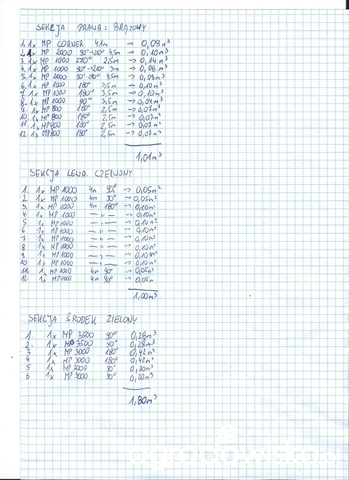 SEKCJA PRAWA: BRĄZOWY
1. 1x MP CORNER 4,1m → 0,09m³
2. 1x MP 2000 90°-210° 4,5m → 0,10m³
3. 1x MP 1000 270° 2,5m → 0,14m³
4. 1x MP 1000 90°-210° 3m → 0,08m³
5. 1x MP 2000 90°-210° 4,5m → 0,09m³
6. 1x MP 1000 180° 3,5m → 0,10m³
7. 1x MP 1000 180° 3,5m → 0,10m³
8. 1x MP 1000 90° 3,5m → 0,04m³
9. 1x MP 800 180° 2,5m → 0,07m³
10. 1x MP 800 180° 2,5m → 0,07m³
11. 1x MP 800 180° 2,5m → 0,07m³
12. 1x MP 800 180° 2,5m → 0,07m³
1,01m³
SEKCJA LEWA. CZERWONY
1. 1x MP 1000 4m 90° → 0,05m³
2. 1x MP 1000 4m 90° → 0,05m³
3. 1x MP 1000 4m 180° → 0,10m³
4. 1x MP 1000 — 〃 — → 0,10m³
5. 1x MP 1000 — 〃 — → 0,10m³
6. 1x MP 1000 — 〃 — → 0,10m³
7. 1x MP 1000 — 〃 — → 0,10m³
8. 1x MP 1000 — 〃 — → 0,10m³
9. 1x MP 1000 — 〃 — → 0,10m³
10. 1x MP 1000 — 〃 — → 0,10m³
11. 1x MP 1000 4m 90° → 0,05m³
12. 1x MP 1000 4m 90° → 0,05m³
1,00m³
SEKCJA ŚRODEK ZIELONY
1. 1x MP 3500 90° 0,28m³
2. 1x MP 3500 90° 0,28m³
3 1x MP 3000 180° 0,42m³
4 1x MP 3000 180° 0,42m³
5 1x MP 3000 90° 0,20m³
6 1x MP 3000 90° 0,20m³
1,80m³
ogrodowisko.pl